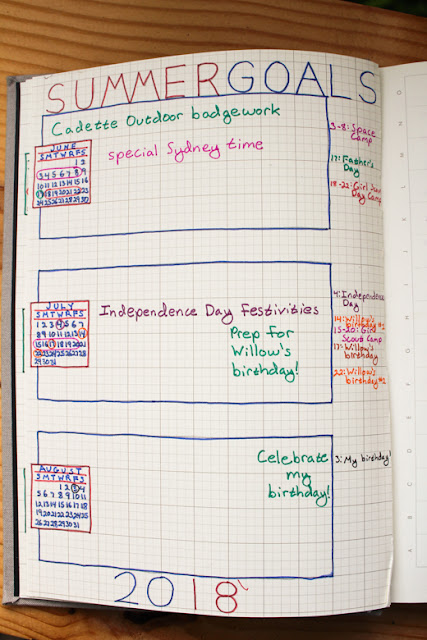 SUMMER GOALS
Cadette Outdoor badgework
special Sydney time
JUNE
SMTWRFS
1 2
3 4 5 6 7 8 9
10 11 12 13 14 15 16
17 18 19 20 21 22 23
24 25 26 27 28 29 30
3-8: Space
Camp
17: Father's
Day
18-22: Girl Scout
Day Camp
JULY
SMTWRFS
1 2 3 4 5 6 7
8 9 10 11 12 13 14
15 16 17 18 19 20 21
22 23 24 25 26 27 28
29 30 31
Independence Day Festivities
Prep for
Willow's
birthday!
4: Independence
Day
14: Willow's
birthday #1
15-20: Girl
Scout Camp
17: Willow's
birthday
22: Willow's
birthday #2
AUGUST
SMTWRFS
1 2 3 4
5 6 7 8 9 10 11
12 13 14 15 16 17 18
19 20 21 22 23 24 25
26 27 28 29 30 31
Celebrate
my
birthday!
3: My birthday!
2018
A B C D E F G H I J K L M N O